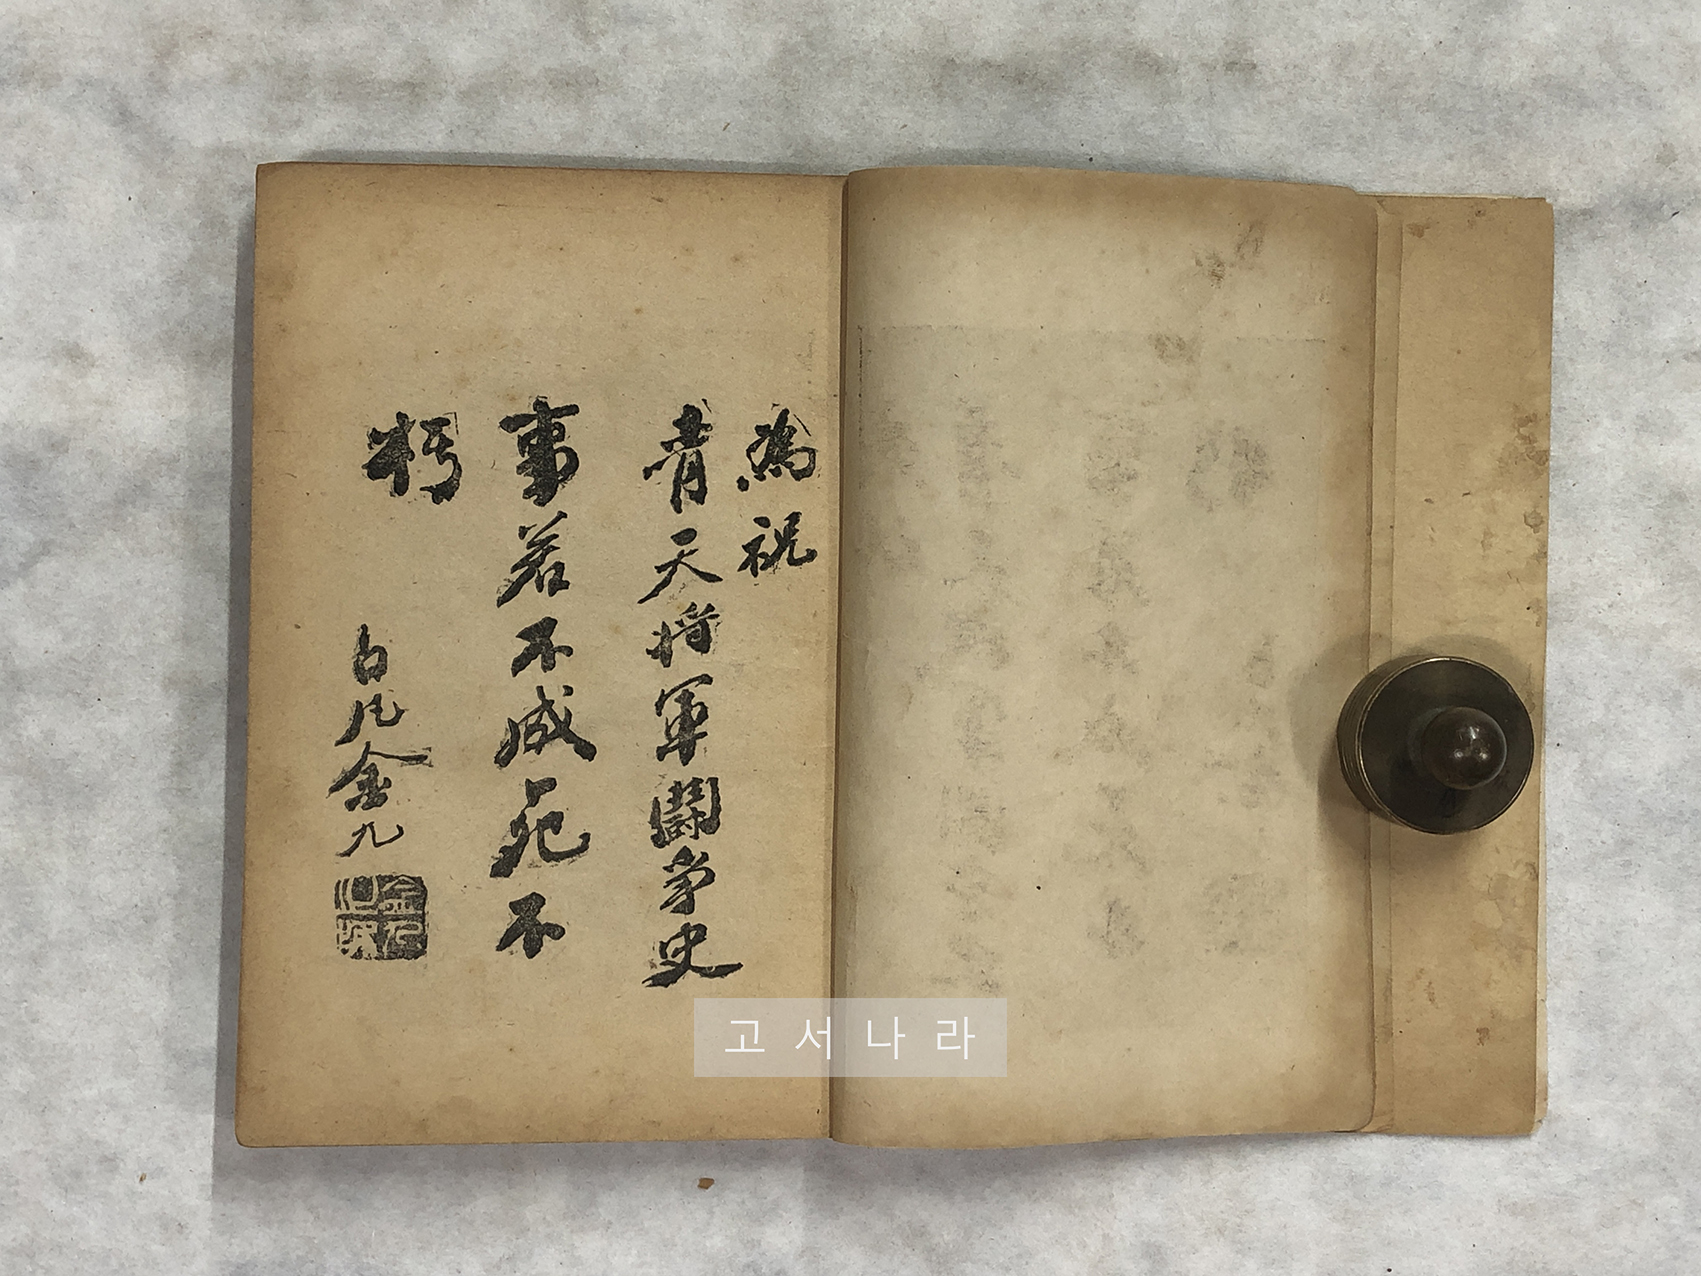 為祝
青天將軍鬪爭史
事若不成死不
朽
白凡金九
고서나라